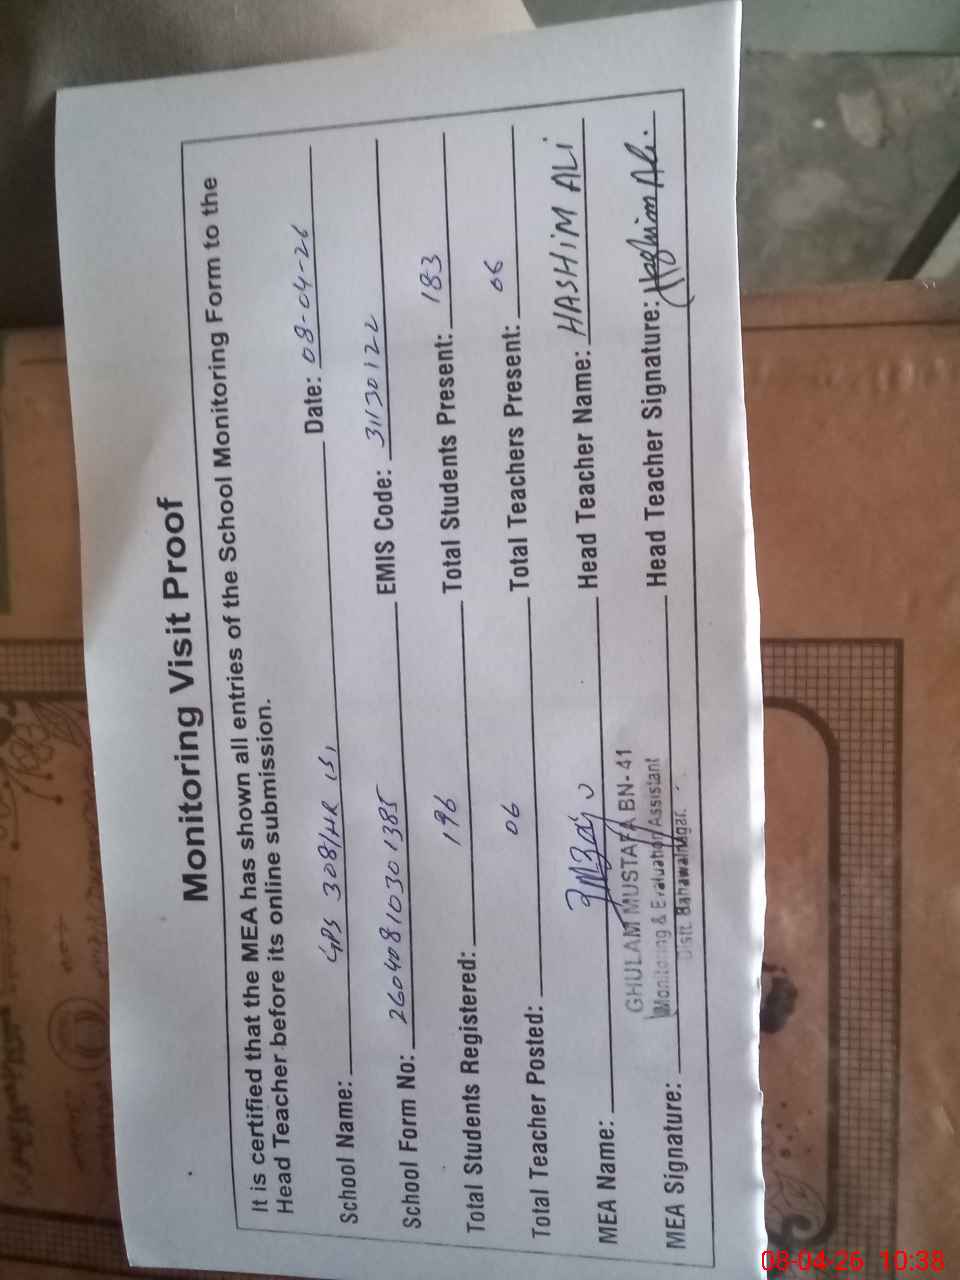 Monitoring Visit Proof
It is certified that the MEA has shown all entries of the School Monitoring Form to the
Head Teacher before its online submission.
School Name: GPS 308/HR Date: 08-04-26
School Form No: 26040810301385 EMIS Code: 31130122
Total Students Registered: 196 Total Students Present: 183
Total Teacher Posted: 06 Total Teachers Present: 06
MEA Name: Head Teacher Name: HASHIM ALI
GHULAM MUSTAFA BN-41
Monitoring & Evaluation Assistant
Distt. Bahawalnagar.
MEA Signature: Head Teacher Signature: Hashim Ali.
08-04-26 10:38